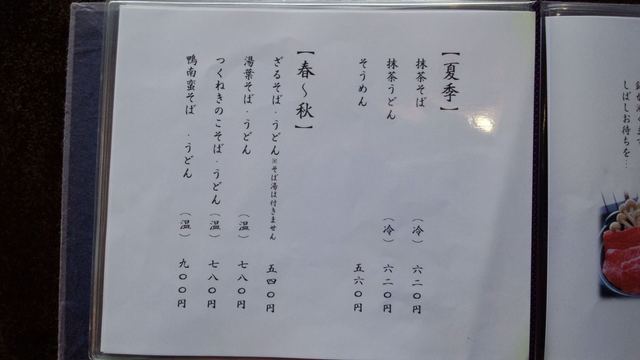 【夏季】
抹茶そば （冷） 六二〇円
抹茶うどん （冷） 六二〇円
そうめん 五六〇円
【春～秋】
ざるそば・うどん※そば湯は付きません 五四〇円
湯葉そば・うどん （温） 七八〇円
つくねきのこそば・うどん （温） 七八〇円
鴨南蛮そば ・うどん （温） 九〇〇円
しばしお待ちを…